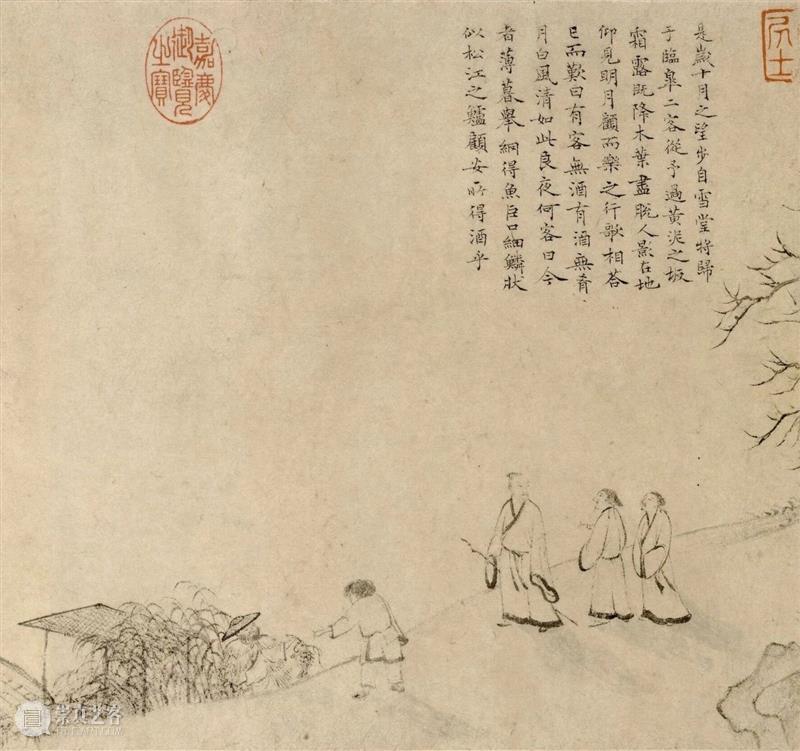 是歲十月之望步自雪堂將歸
于臨皋二客從予過黃泥之坂
霜露既降木葉盡脫人影在地
仰見明月顧而樂之行歌相荅
已而歎曰有客無酒有酒無肴
月白風清如此良夜何客曰今
者薄暮舉網得魚巨口細鱗狀
似松江之鱸顧安所得酒乎
嘉慶御覽之寶
崇真艺客